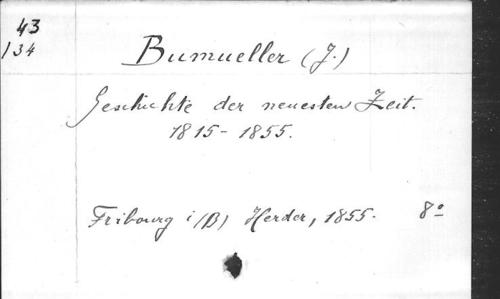 43
/34
Bumueller (J.)
Geschichte der neuesten Zeit.
1815 - 1855.
Fribourg i/(B) Herder, 1855. 8°